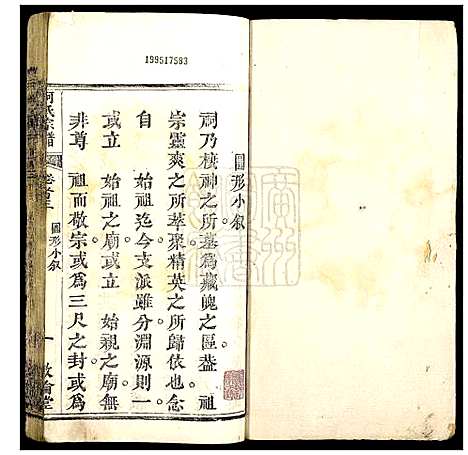 199517583
圖形小叙
祠乃棲神之所墓爲藏魄之區葢　祖
宗靈爽之所萃聚精英之所歸依也念
自　始祖迄今支派雖分淵源則一
或立　始祖之廟或立　始親之廟無
非尊　祖而敬宗或爲三尺之封或爲
何氏宗譜
圖形小叙
一
敦睦堂